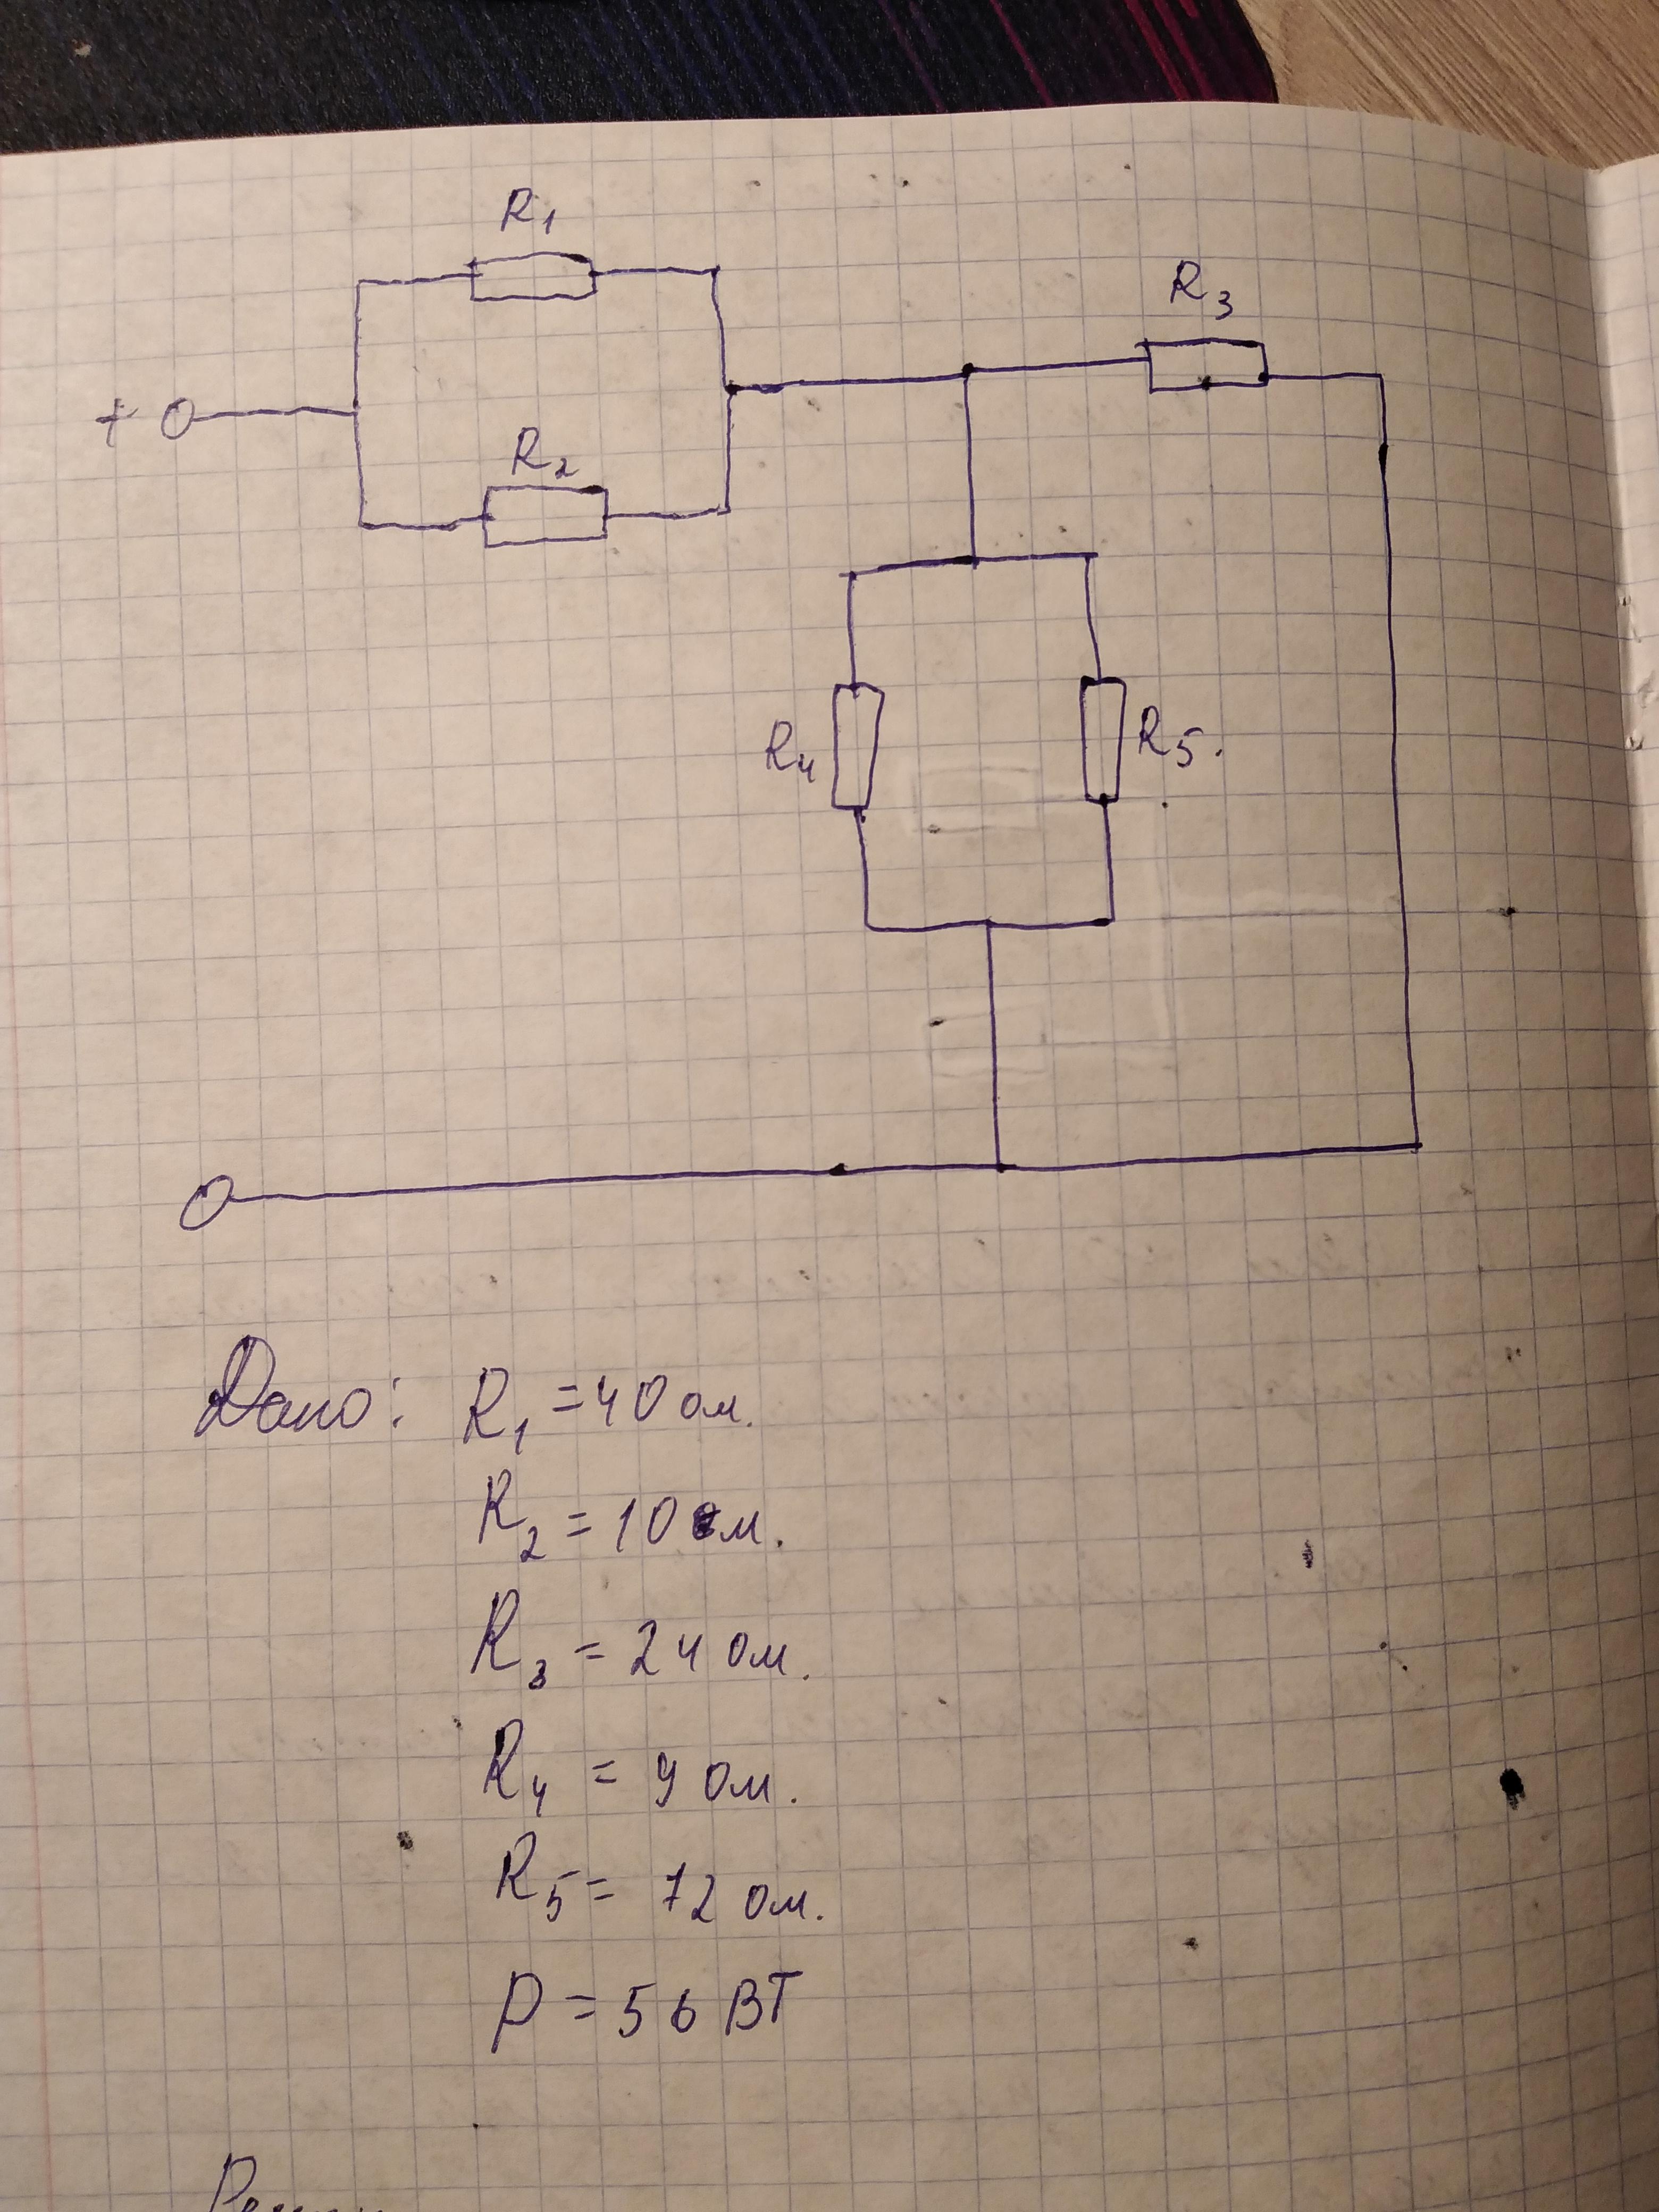 R1
R3
+
R2
R4
R5.
Дано: R1 = 40 ом.
R2 = 10 ом.
R3 = 24 ом.
R4 = 9 ом.
R5 = 72 ом.
P = 56 ВТ